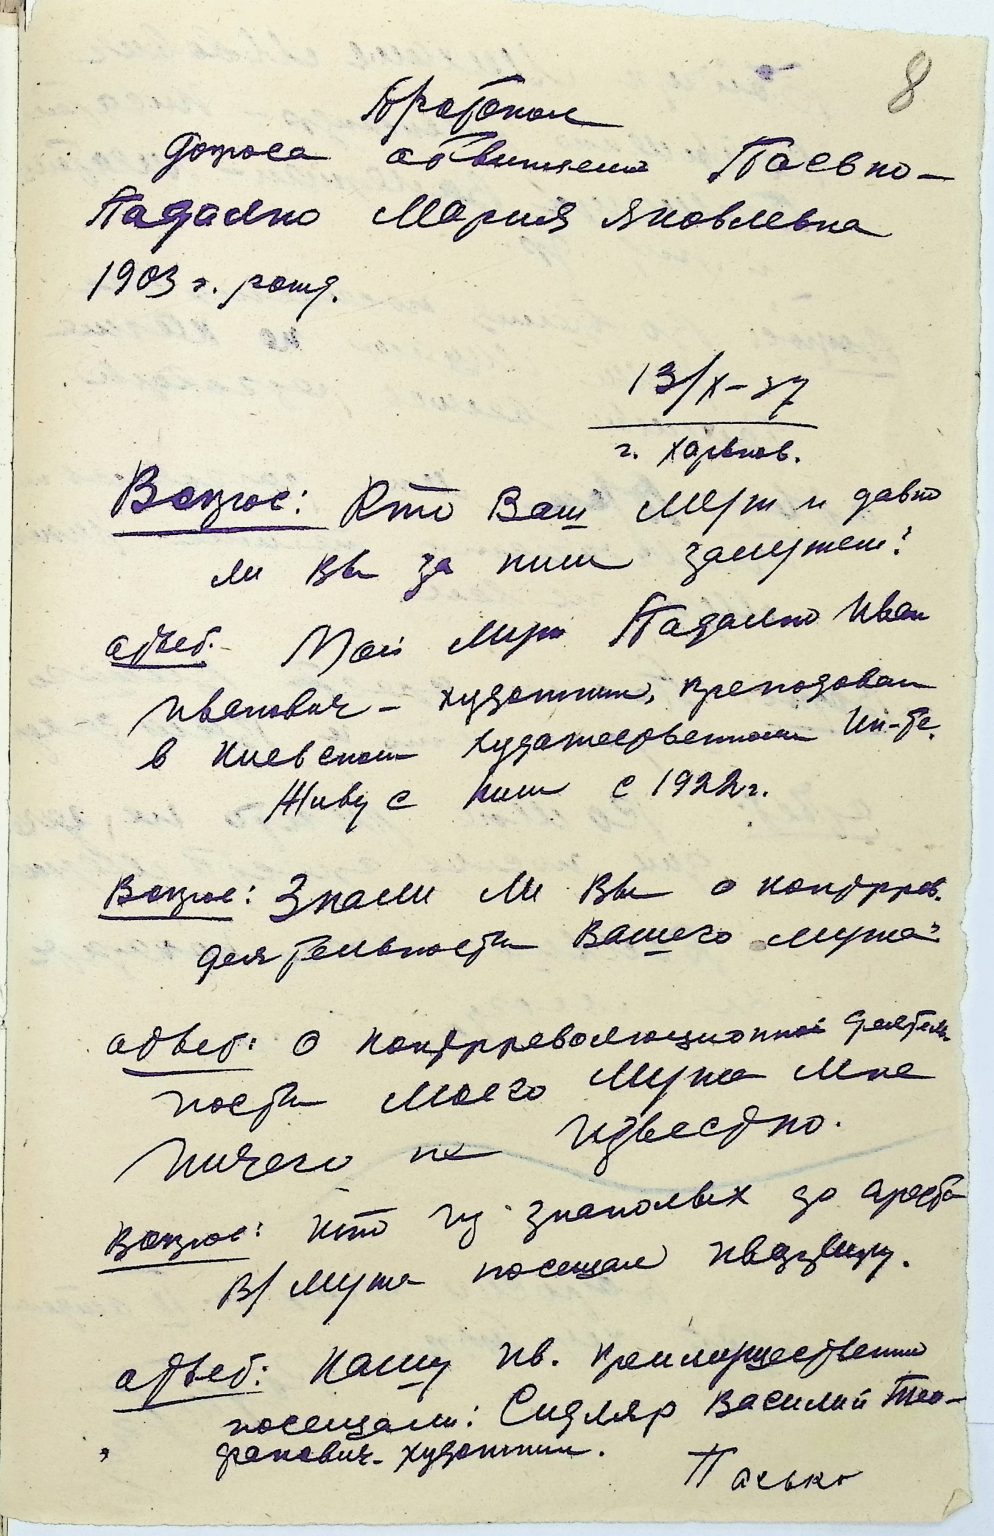 8
Протокол
допроса обвиняемой Пасько-
Падалко Мария Яковлевна
1903 г. рожд.
13/X-37
г. Харьков.
Вопрос: Кто Ваш муж и давно
ли Вы за ним замужем?
Ответ. Мой муж Падалко Иван
Иванович - художник, преподавал
в Киевском художественном Ин-те.
Живу с ним с 1922 г.
Вопрос: Знали ли Вы о контррев.
деятельности Вашего мужа?
Ответ: О контрреволюционной деятель-
ности моего мужа мне
ничего не известно.
Вопрос: Кто из знакомых до ареста
В/мужа посещал квартиру.
Ответ: Нашу кв. преимущественно
посещали: Седляр Василий Тео-
фанович - художник.
Пасько